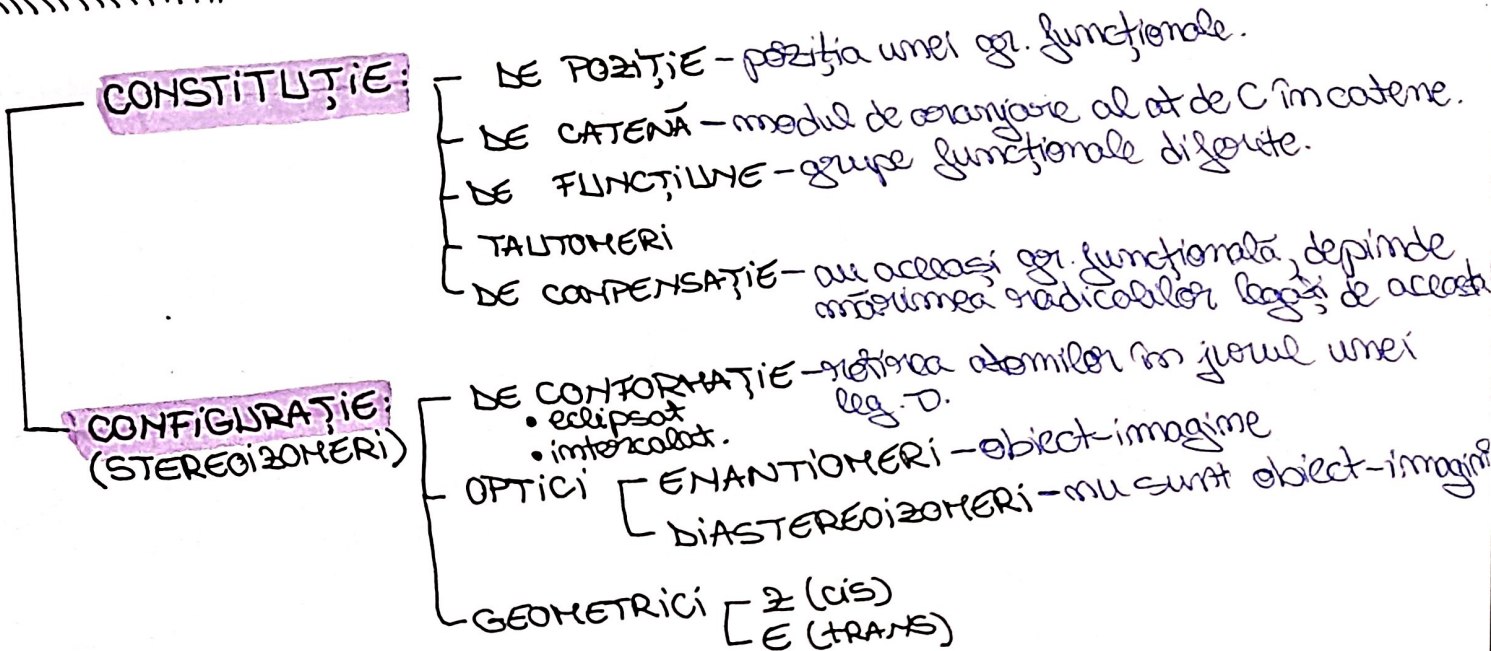 CONSTITUȚIE:
DE POZIȚIE - poziția unei gr. funcționale.
DE CATENĂ - modul de aranjare al at de C în catene.
DE FUNCȚIUNE - grupe funcționale diferite.
TAUTOMERI
DE COMPENSAȚIE - au aceeași gr. funcțională, depinde
mărimea radicalilor legați de aceasta
CONFIGURAȚIE:
(STEREOIZOMERI)
DE CONFORMAȚIE - rotirea atomilor în jurul unei
leg. σ.
• eclipsat
• intercalat.
OPTICI
ENANTIOMERI - obiect-imagine
DIASTEREOIZOMERI - nu sunt obiect-imagine
GEOMETRICI
Z (cis)
E (TRANS)